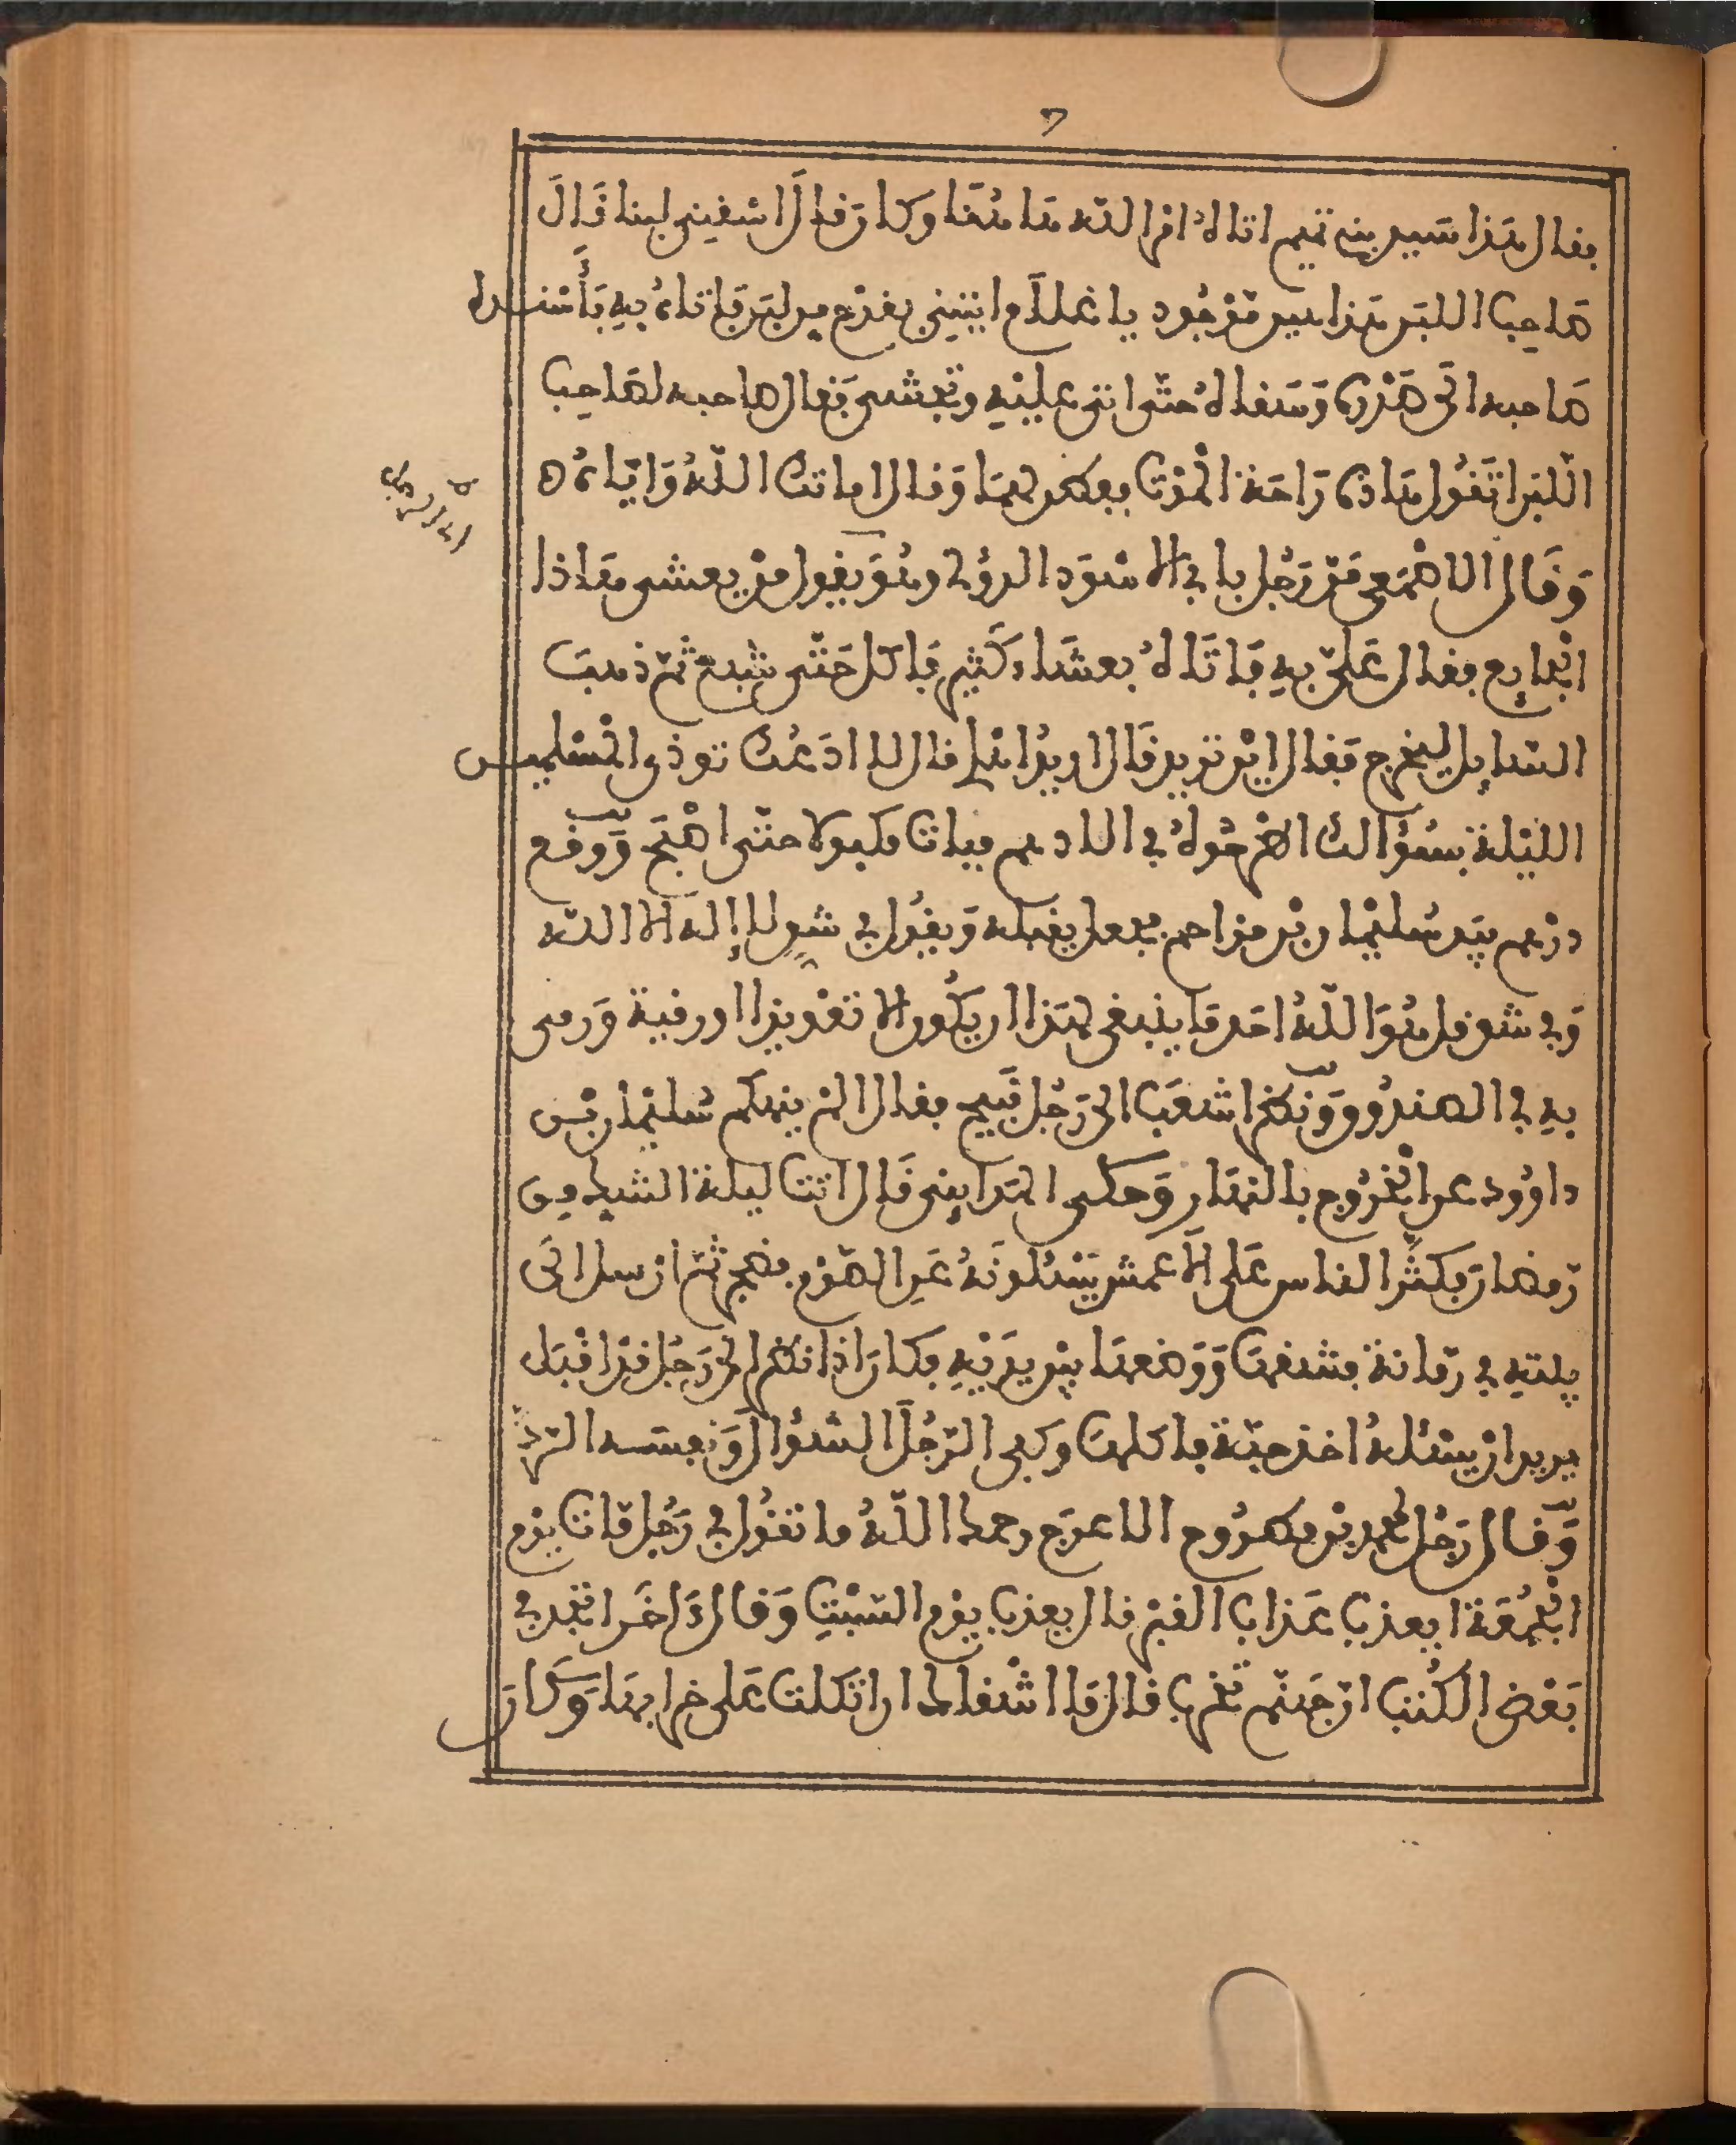 7
فقال هذا سيد بني تميم اتاله امر الله هاهنا وكان قال اسقيني لبنا قال
صاحب اللبن هذا لبن موجود يا غلام ايتيني بقدح من لبن فاتاه به فأسنده
صاحبه الى صدره وسقاله حتى اتى عليه وتجشى فقال صاحبه لصاحب
اللبن اتقول هاذه راحة الموت ففطن لهما وقال اماتك الله واياه ه
وقال الاصمعي مر رجل بابي الاسود الدؤلي وهو يقول من يعشى هاذا
الجايع فقال علي به فاتاله بعشاء كثير فاكل حتى شبع ثم ذهب
السايل ليخرج فقال اين تريد قال اريد اهلي قال لا ادعك توذي المسلمين
الليلة بسؤالك اطرحوله في الادهم فبات مكبولا حتى اصبح ووقع
درهم بيد سليمان بن مزاحم فجعل يقبله ويقول في شق لا إله الا الله
وفي شق قل هو الله احد ما ينبغي لهذا ان يكون الا تعويذا او رقية ورمى
به في الصندوق ونظر اشعب الى رجل قبيح فقال الم ينهكم سليمان بن
داوود عن الخروج بالنهار وحكى الهدايني قال اتت ليلة الشك من
رمضان فكثر الناس على الاعمش يسئلونه عن الصوم فضجر ثم ارسل الى
بيته في رمانة فشقها ووضعها بين يديه فكان اذا نظر الى رجل قد اقبل
يريد ان يسئله اخذ حبة فاكلها وكفى الرجل السؤال ونفسه الرد
وقال رجل لمحمد بن مطروح الاعرج رحمه الله ما تقول في رجل مات يوم
الجمعة ايعذب عذاب القبر قال يعذب يوم السبت وقال له اخر اتجد في
بعض الكتب ان جهنم تخرب قال ما اشقاك ان اتكلت على خرابها وكان